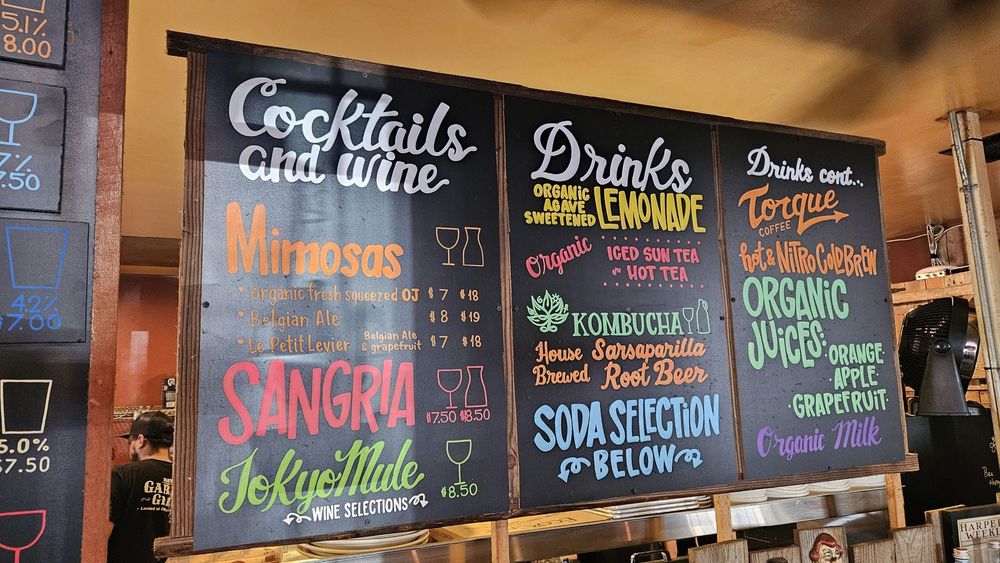 5.1%
8.00
7%
7.50
42%
$7.00
5.0%
$7.50
Cocktails
and wine
Mimosas
* organic fresh squeezed OJ $7 $18
* Belgian Ale $8 $19
* Le Petit Levier Belgian Ale & grapefruit $7 $18
SANGRIA
$7.50 $8.50
Tokyo Mule
$8.50
WINE SELECTIONS
Drinks
ORGANIC
AGAVE
SWEETENED
LEMONADE
Organic
ICED SUN TEA
or HOT TEA
KOMBUCHA
House Sarsaparilla
Brewed Root Beer
SODA SELECTION
BELOW
Drinks cont...
Torque
COFFEE
hot & NITRO COLD BREW
ORGANIC
JUICES:
ORANGE
APLE
GRAPEFRUIT
Organic Milk
HARPER
WEEKL